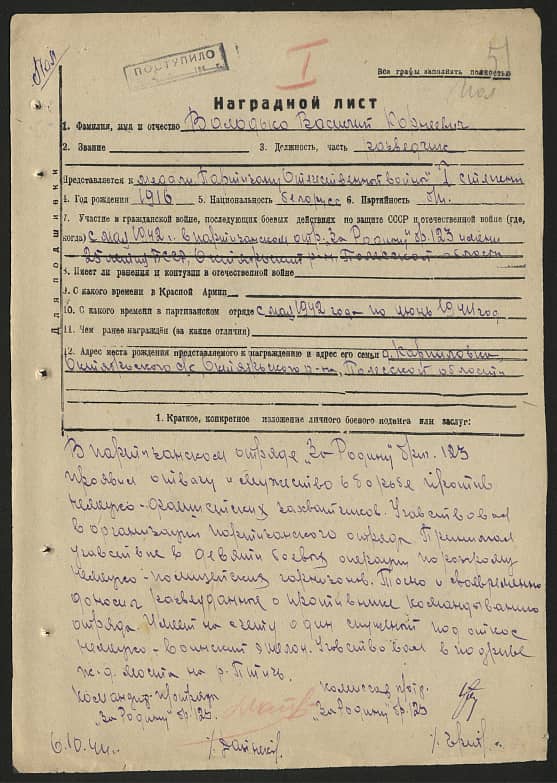 ПОСТУПИЛО
I
Все графы заполнять полностью
Наградной лист
1. Фамилия, имя и отчество Володько Василий Корнеевич
2. Звание 3. Должность, часть разведчик
Представляется к медали "Партизану Отечественной войны" I степени
4. Год рождения 1916 5. Национальность белорусс 6. Партийность б/п.
7. Участие в гражданской войне, последующих боевых действиях по защите СССР и отечественной войне (где,
когда) с мая 1942 г. в партизанском отр. "За Родину" бр. 123 имени
25 летия БССР, Октябрьский р-н. Полесской области
8. Имеет ли ранения и контузии в отечественной войне
9. С какого времени в Красной Армии
10. С какого времени в партизанском отряде с мая 1942 года по июнь 1944 год
11. Чем ранее награждён (за какие отличия)
12. Адрес места рождения представляемого к награждению и адрес его семьи д. Карпиловка
Октябрьского с/с, Октябрьского р-на, Полесской области
Для подшивки
1. Краткое, конкретное изложение личного боевого подвига или заслуг:
В партизанском отряде "За Родину" бриг. 123
проявил отвагу и мужество в борьбе против
немецко-фашистских захватчиков. Участвовал
в организации партизанского отряда. Принимал
участие в девяти боевых операции по разгрому
немецко-полицейских гарнизонов. Точно и своевременно
доносил разведданные о противнике командованию
отряда. Имеет на счету один спущеный под откос
немецко-воинский эшелон. Участвовал в подрыве
ж.д. моста на р. Птичь.
Командир п/отряда комиссар п/отр.
"За Родину" бр. 123. "За Родину" бр. 123
6.10.44г.